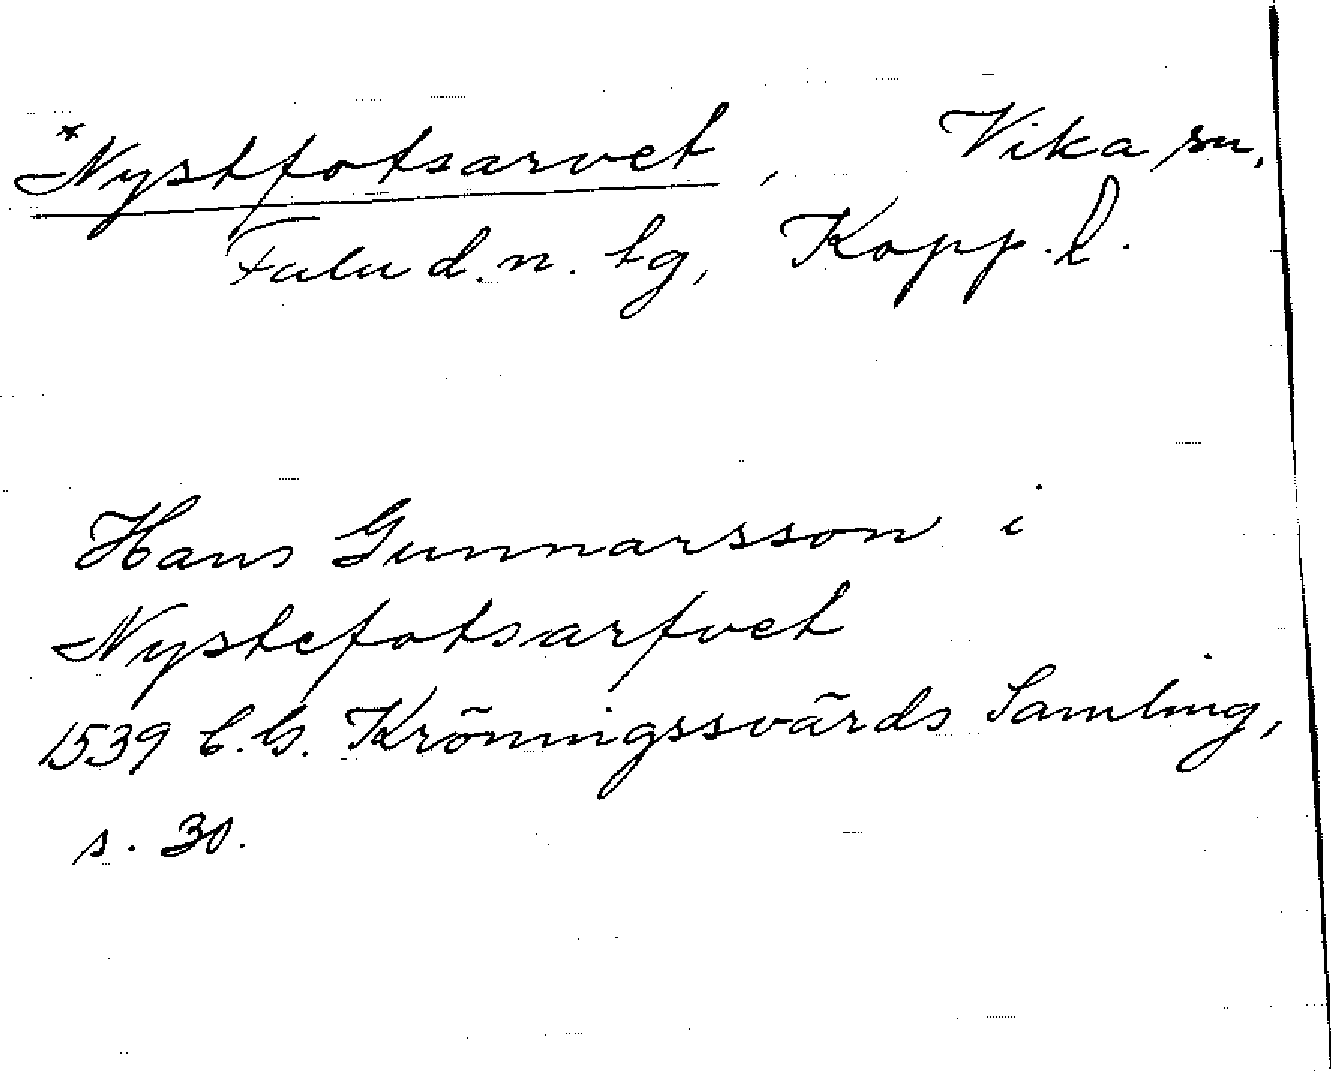 *Nystfotsarvet, Vika sn,
Falu d. n. tg, Kopp. l.
Hans Gunnarsson i
Nystefotsarfvet
1539 C.G. Kröningssvärds Samling,
s. 30.